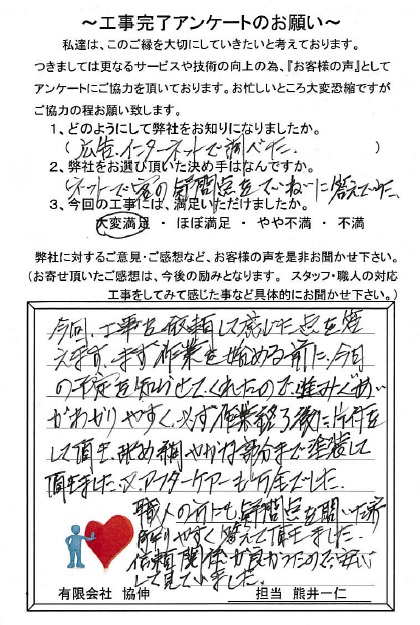 ～工事完了アンケートのお願い～
私達は、このご縁を大切にしていきたいと考えております。
つきましては更なるサービスや技術の向上の為、『お客様の声』として
アンケートにご協力を頂いております。お忙しいところ大変恐縮ですが
ご協力の程お願い致します。
1、どのようにして弊社をお知りになりましたか。
(広告.インターネットで調べた.)
2、弊社をお選び頂いた決め手はなんですか。
(ネットで の疑問点をていねいに答えていた.
3、今回の工事には、満足いただけましたか。
大変満足 ・ ほぼ満足 ・ やや不満 ・ 不満
弊社に対するご意見・ご感想など、お客様の声を是非お聞かせ下さい。
(お寄せ頂いたご感想は、今後の励みとなります。 スタッフ・職人の対応
工事をしてみて感じた事など具体的にお聞かせ下さい。)
今回、工事を依頼して感じた点を答
えます。まず作業を始める前に、今日
の予定を知らせてくれたので進みぐあい
がわかりやすく、必ず作業終了後に片付を
して頂き、 細やかな部分まで塗装して
頂きました。又アフターケアーも万全でした。
職人の方にも疑問点を聞いた所
解りやすく答えて頂きました.
信頼関係が良かったので安心
して見ていました.
有限会社 協伸
担当 熊井一仁